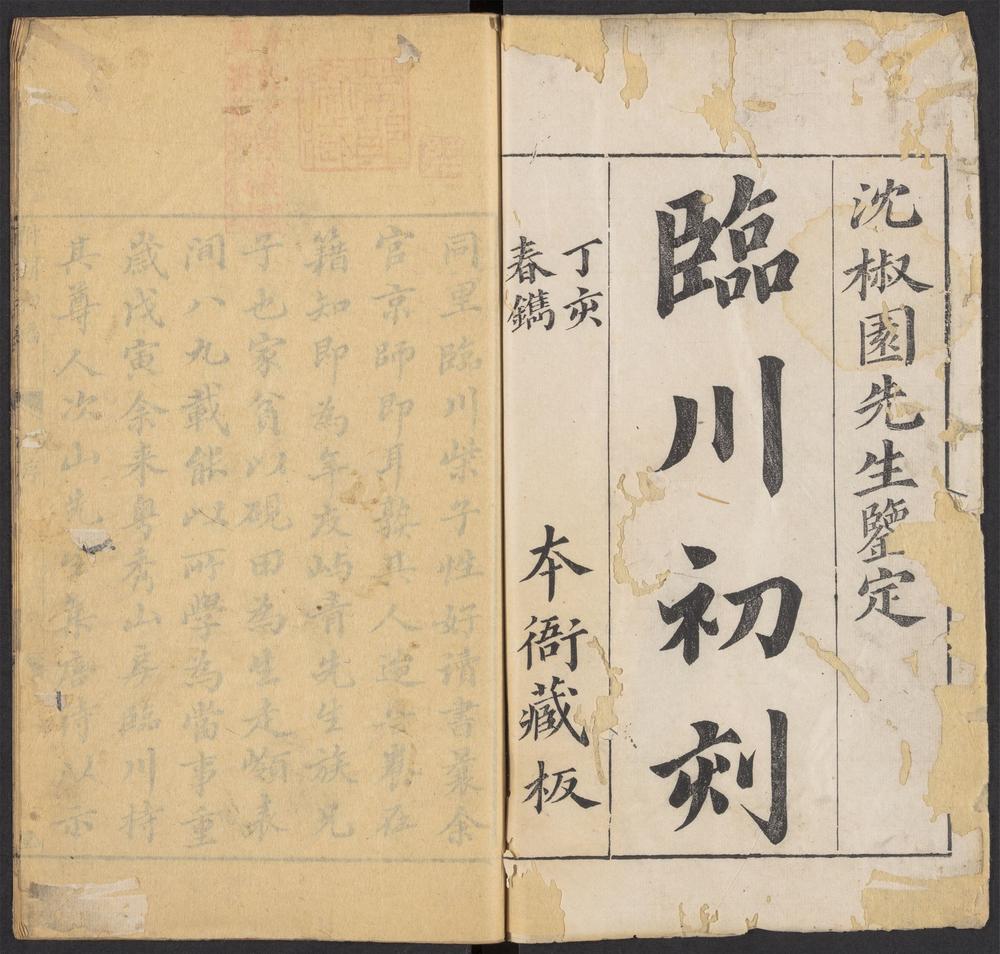 沈椒園先生鑒定
臨川初刻
丁亥
春鐫
本衙藏板
同里臨川柴子性好讀書曩余
官京師即耳熟其人在
籍知即為年友嶼青先生族兄
子也家貧以硯田為生走嶺表
間八九載能以所學為當事重
歲戊寅余来粵秀山房臨川持
其尊人次山先生集唐詩以示